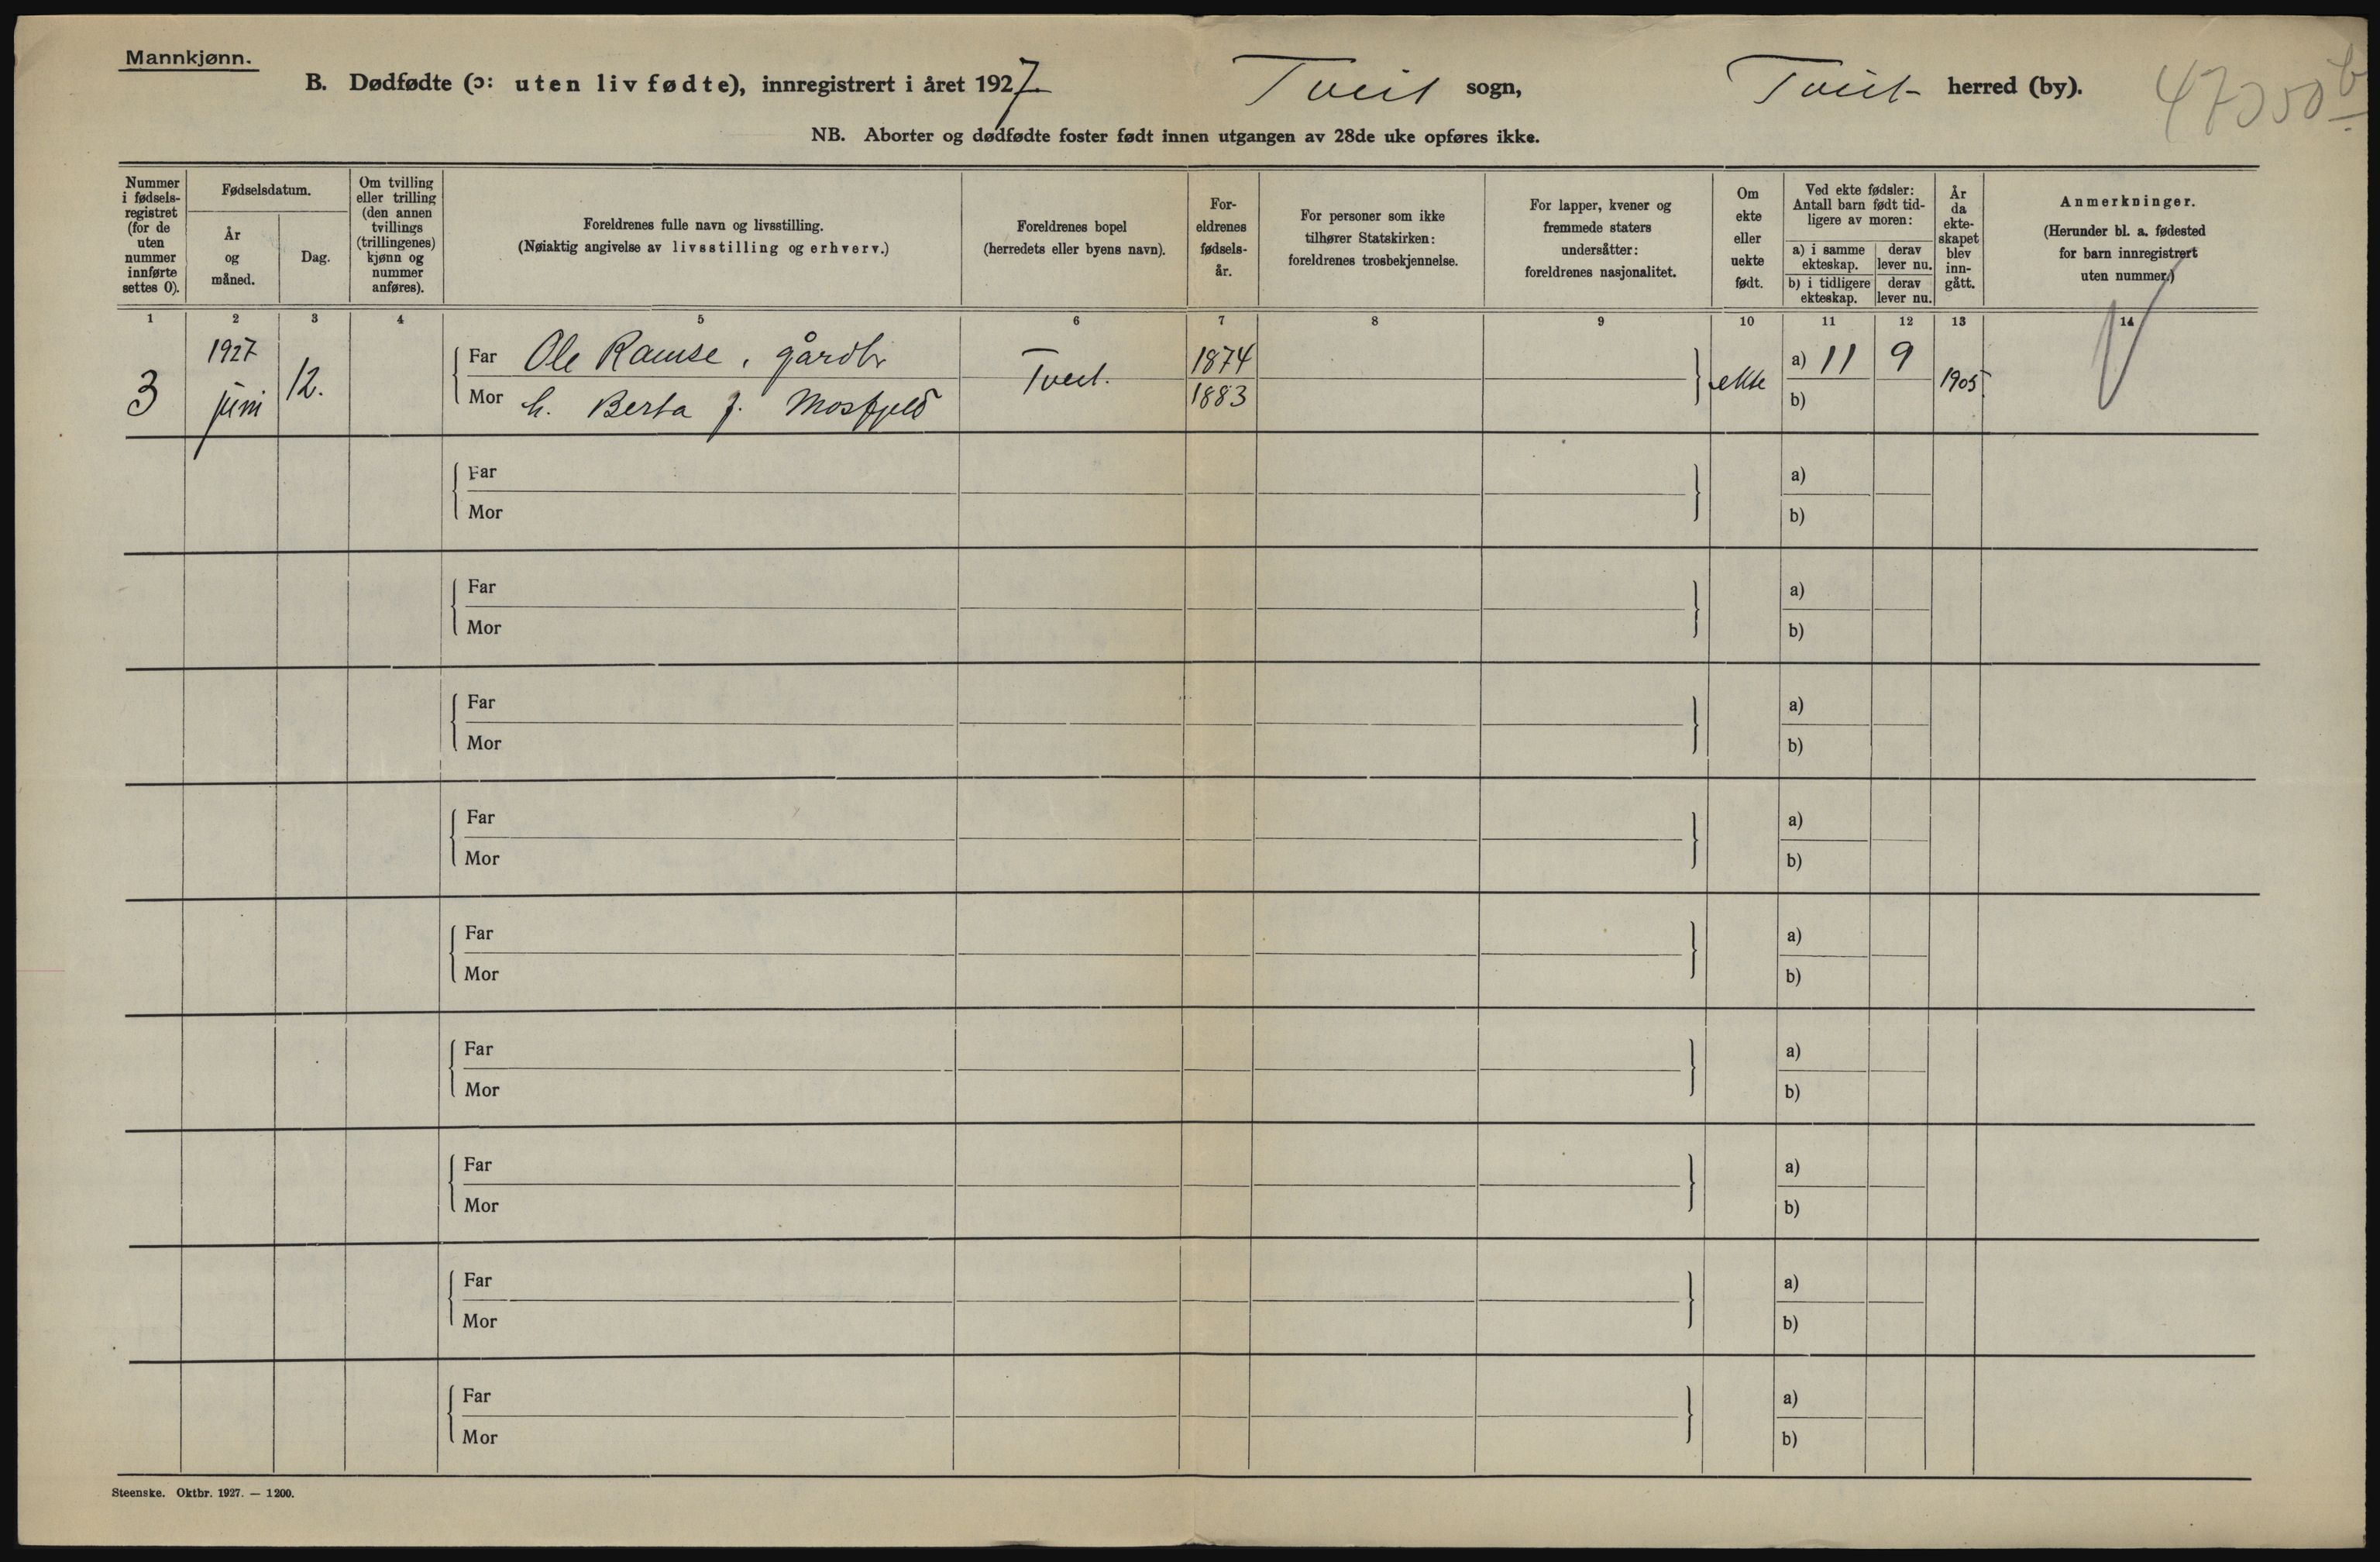 Mannkjønn.
B. Dødfødte (ɔ: uten liv fødte), innregistrert i året 1927 Tveit sogn, Tveit herred (by). 47050 b
NB. Aborter og dødfødte foster født innen utgangen av 28de uke opføres ikke.
Nummer i fødsels-registret (for de uten nummer innførte settes 0).
Fødselsdatum.
År og måned.
Dag.
Om tvilling eller trilling (den annen tvillings (trillingenes) kjønn og nummer anføres).
Foreldrenes fulle navn og livsstilling.
(Nøiaktig angivelse av livsstilling og erhverv.)
Foreldrenes bopel
(herredets eller byens navn).
For-eldrenes fødsels-år.
For personer som ikke tilhører Statskirken: foreldrenes trosbekjennelse.
For lapper, kvener og fremmede staters undersåtter: foreldrenes nasjonalitet.
Om ekte eller uekte født.
Ved ekte fødsler: Antall barn født tid-ligere av moren:
a) i samme ekteskap. derav lever nu.
b) i tidligere ekteskap. derav lever nu.
År da ekte-skapet blev inn-gått.
Anmerkninger.
(Herunder bl. a. fødested for barn innregistrert uten nummer.)
1 2 3 4 5 6 7 8 9 10 11 12 13 14
3 1927 juni 12. Far Ole Ramse, gårdbr Tveit. 1874 ekte a) 11 9 1905
Mor h. Berta f. Mosfjeld 1883 b)
Far a)
Mor b)
Far a)
Mor b)
Far a)
Mor b)
Far a)
Mor b)
Far a)
Mor b)
Far a)
Mor b)
Far a)
Mor b)
Far a)
Mor b)
Far a)
Mor b)
Steenske. Oktbr. 1927. — 1200.